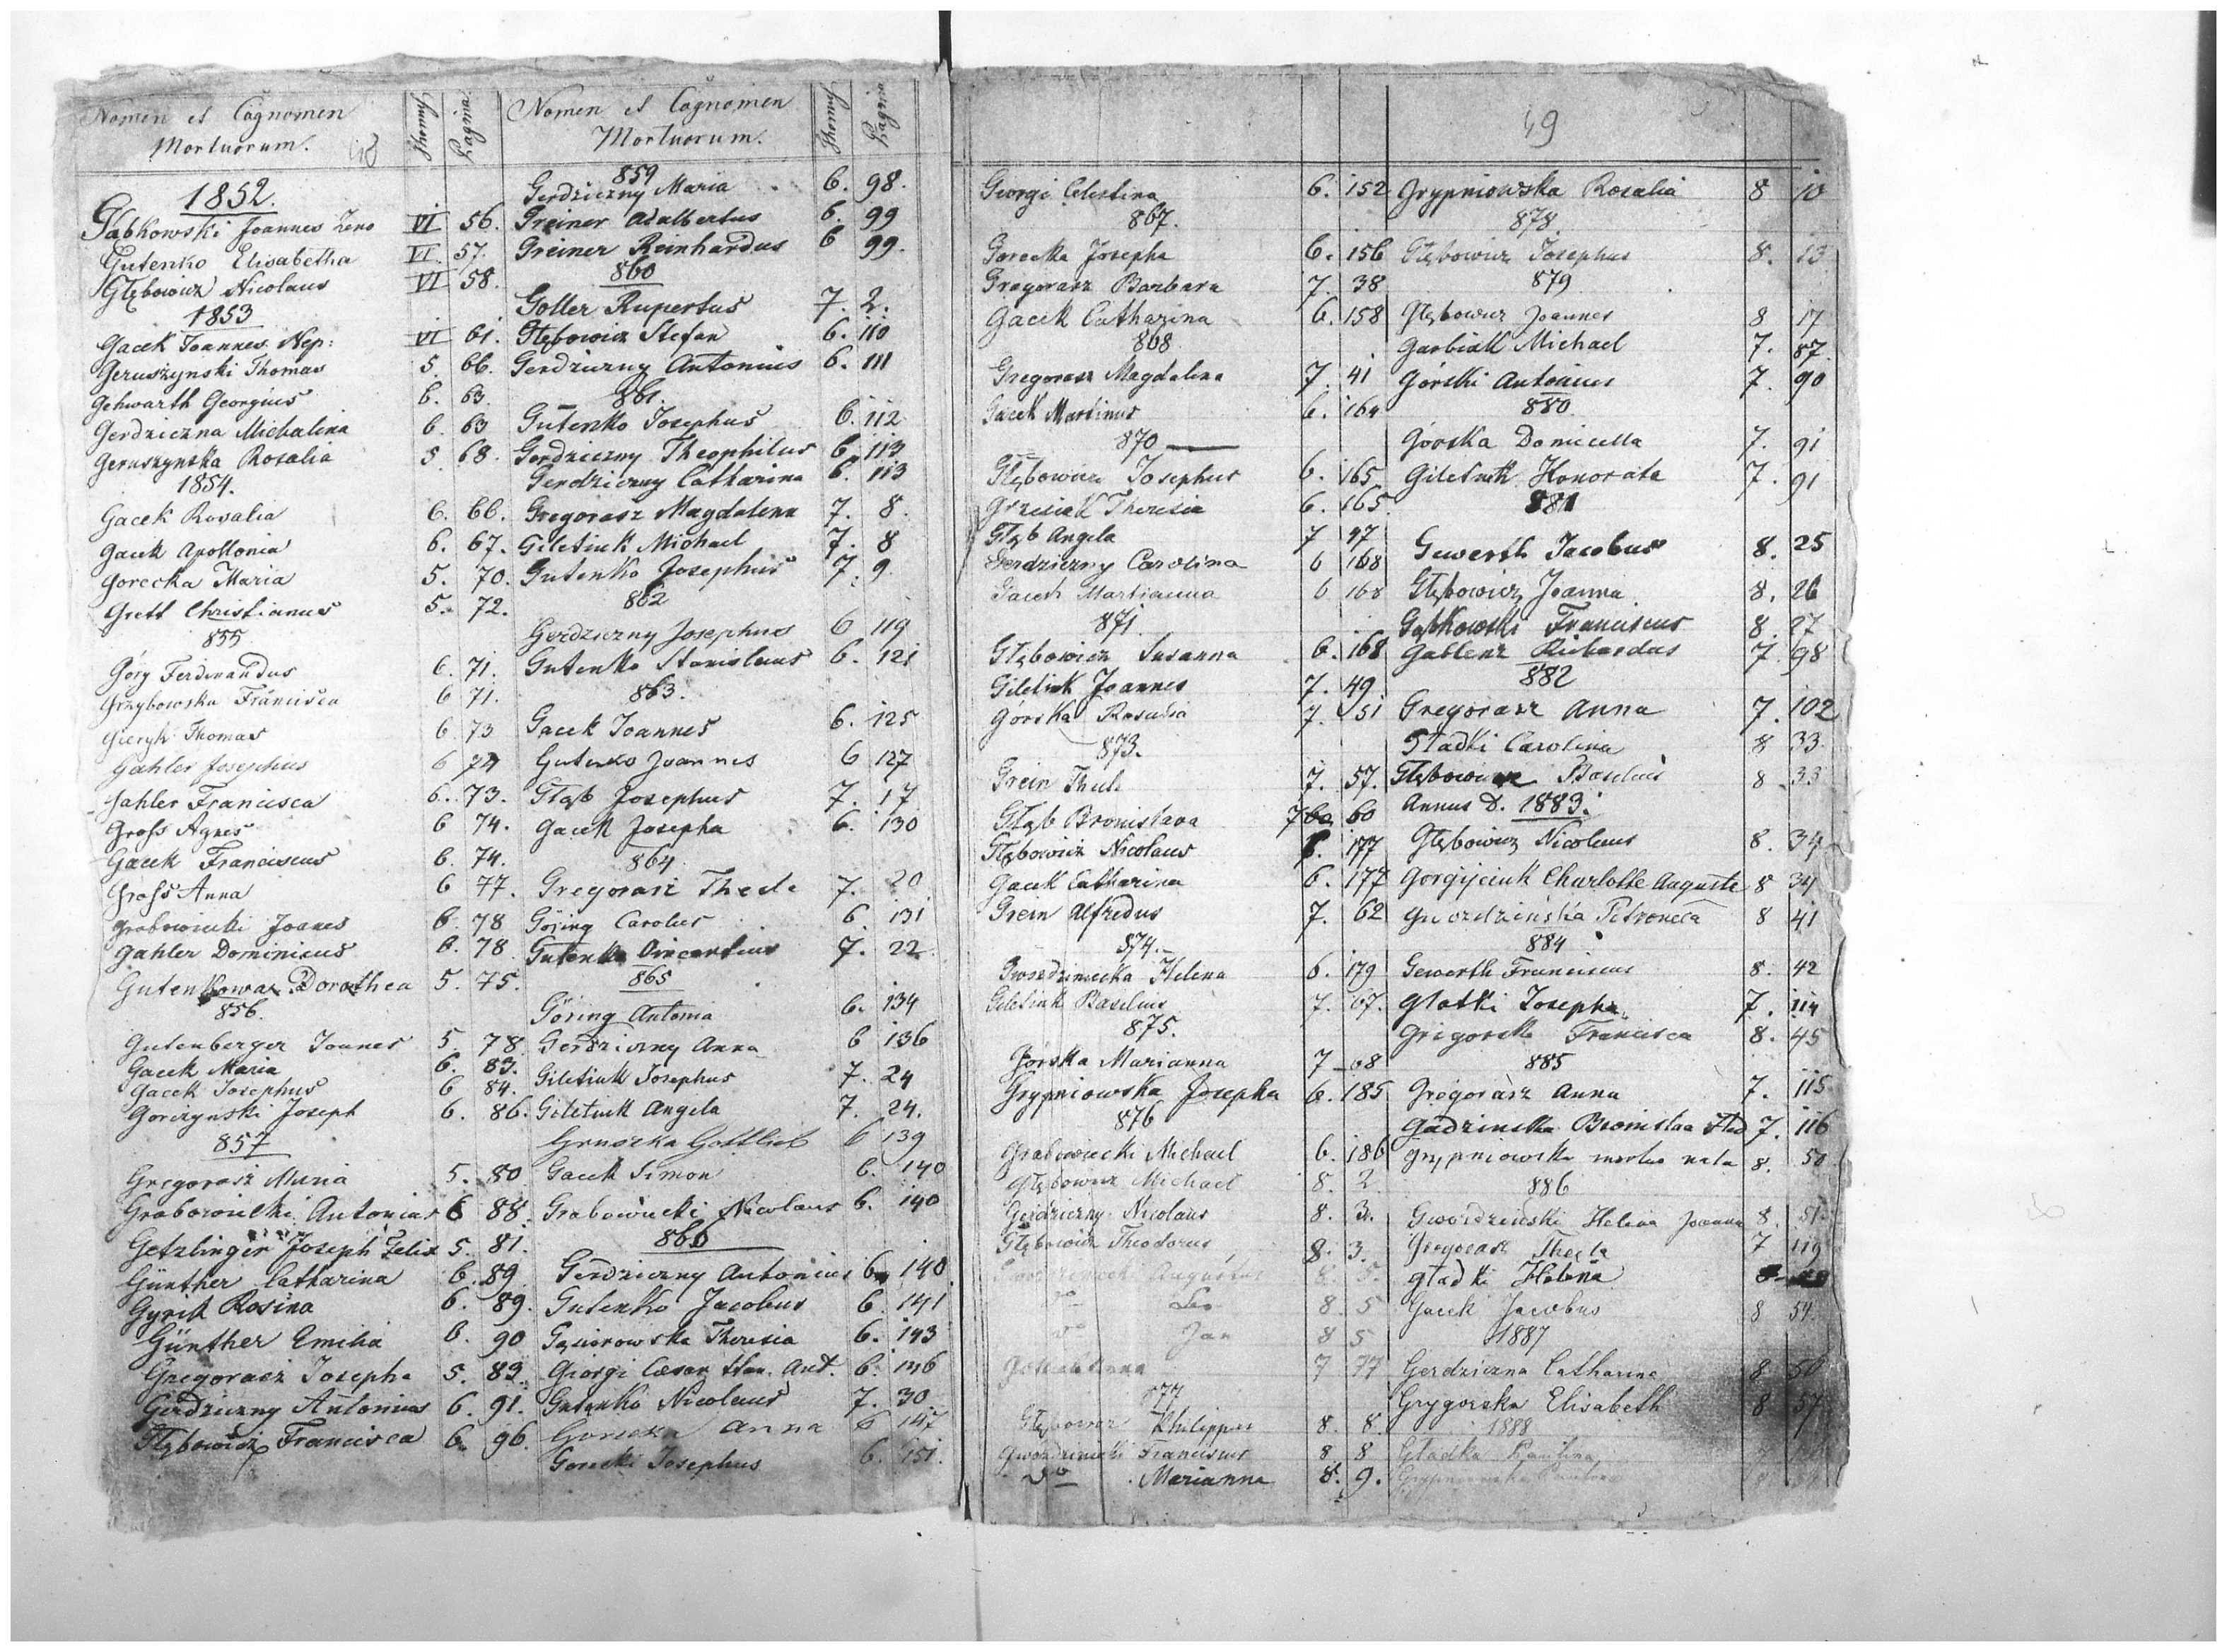 Nomen et Cognomen
Mortuorum. 48
Thomus
Pagina
1852.
Gabkowski Joannes Zeno VI 56.
Gutenko Elisabetha VI. 57.
Głębowicz Nicolaus VI 58.
1853
Gacek Joannes Nep: VI 61.
Geruszynski Thomas 5. 66.
Gehwarth Georgius 6. 63.
Gerdziczna Michalina 6. 63
Geruszynska Rosalia 5 68.
1854.
Gacek Rosalia 6. 66.
Gacek Apollonia 6. 67.
Gorecka Maria 5. 70.
Grett Christianus 5. 72.
855
Góry Ferdinandus 6. 71.
Grzybowska Francisca 6 71.
Gieryk Thomas 6. 73
Gahler Josephus 6 74
Gahler Francisca 6. 73.
Gross Agnes 6 74.
Gacek Franciscus 6. 74.
Gross Anna 6 77.
Grabowiecki Joanes 6. 78
Gahler Dominicus 6. 78.
Gutenkowa Dorothea 5. 75.
856.
Gutenberger Joannes 5. 78.
Gacek Maria 6. 83.
Gacek Josephus 6 84.
Gorczynski Joseph 6. 86.
857
Gregorasz Maria 5. 80.
Grabowiecki Antonius 6 88.
Getzlinger Joseph Felix 5. 81.
Günther Catharina 6. 89
Gyrek Rosina 6. 89.
Günther Emilia 6. 90
Gregorasz Josepha 5. 83.
Gerdziczny Antonius 6. 91.
Głębowicz Francisca 6. 96.
Nomen et Cognomen
Mortuorum.
Thomus
Pagina
859
Gerdziczny Maria 6. 98.
Greiner Adalbertus 6. 99
Greiner Reinhardus 6 99.
860
Goller Rupertus 7. 2.
Głębowicz Stefan 6. 110
Gerdziczny Antonius 6. 111
861.
Gutenko Josephus 6. 112
Gerdziczny Theophilus 6. 113
Gerdziczny Catharina 6. 113
Gregorasz Magdalena 7. 8.
Giletiuk Michael 7. 8
Gutenko Josephus 7. 9
862
Gerdziczny Josephus 6 119
Gutenko Stanislaus 6. 121
863.
Gacek Joannes 6. 125
Gutenko Joannes 6 127
Głąb Josephus 7. 17
Gacek Josepha 6. 130
864
Gregorasz Thecla 7. 20
Göring Carolus 6. 131
Gutenko Vincentius 7. 22
865
Göring Antonia 6. 134
Gerdziczny Anna 6 136
Giletiuk Josephus 7. 24
Giletiuk Angela 7. 24.
Gottlieb 6 139
Gacek Simon 6. 140
Grabowiecki Nicolaus 6. 140
866
Gerdziczny Antonius 6 140
Gutenko Jacobus 6. 141
Gąsiorowska Theresia 6. 143
Giorgi Caesar Ant. 6. 146
Gutenko Nicolaus 7. 30
Gorecka Anna 6 147
Gorecki Josephus 6. 151.
Georgi Celestina 6. 152
867.
Gorecka Josepha 6. 156
Gregorasz Barbara 7. 38
Gacek Catharina 6. 158
868
Gregorasz Magdalena 7. 41
Gacek Martinus 6. 164
870
Głębowicz Josephus 6. 165
Grzesiak Theresia 6. 165
Głąb Angela 7 47
Gerdziczny Carolina 6 168
Gacek Marianna 6 168
871
Głębowicz Susanna 6. 168
Giletiuk Joannes 7. 49
Górska Rosalia 7. 51
873.
Grein Thecla 7. 57.
Głąb Bronislava 7 60
Głębowicz Nicolaus 6. 177
Gacek Catharina 6. 177
Grein Alfredus 7. 62
874.
Helena 6. 179
Giletiuk Basilius 7. 67.
875.
Górska Marianna 7 68
Grypniowska Josepha 6. 185
876
Grabowiecki Michael 6. 186
Głębowicz Michael 8. 2
Gerdziczny Nicolaus 8. 3.
Głębowicz Theodorus 8. 3.
Augustus 8. 5.
do Leo 8. 5
do Jan 8 5
Anna 7 77
877
Głębowicz Philippus 8. 8.
Franciscus 8 8
do Marianna 8. 9.
49
Grypniowska Rosalia 8 10
878.
Głębowicz Josephus 8. 13
879
Głębowicz Joannes 8 17
Garbiak Michael 7. 87.
Górski Antonius 7. 90
880
Górska Domicella 7. 91
Giletiuk Honorata 7. 91
881
Gewerth Jacobus 8. 25
Głębowicz Joanna 8. 26
Gąbkowski Franciscus 8. 27
Gablenz Richardus 7. 98
882
Gregorasz Anna 7. 102
Gładki Carolina 8 33.
Głębowicz Basilius 8 33
Annus D. 1883.
Głębowicz Nicolaus 8. 34
Gorgijciuk Charlotte Auguste 8 34
Gwozdzińska Petronela 8 41
884
Gewerth Franciscus 8. 42
Glatki Josepha 7. 114
Grigorska Francisca 8. 45
885
Gregorasz Anna 7. 115
Gadzinska Bronislaa 7. 116
Grypniowska mortua nata 8. 50
886
Gwordzinski Helena Joanna 8. 51.
Gregorasz Thecla 7 119
Gładki Helena
Gacek Jacobus 8 54.
1887
Gerdziczna Catharina 8. 56
Grygorska Elisabeth 8 57
1888
Gładka Paulina